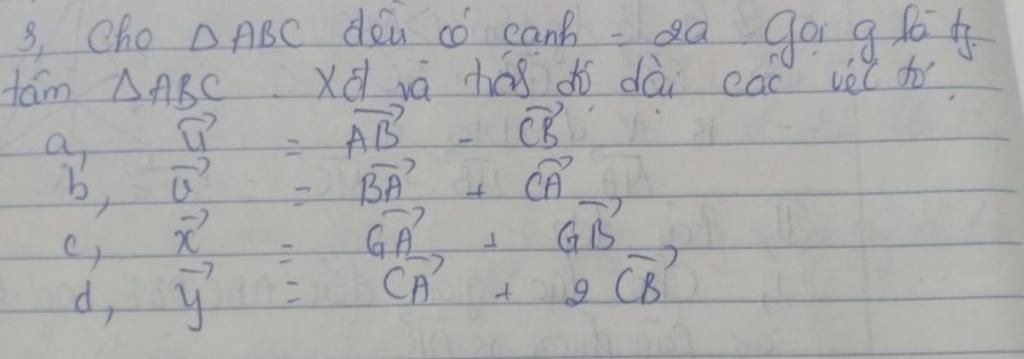 3, Cho △ABC đều có cạnh = 2a Gọi G là tg
tâm △ABC . Xđ và tính độ dài các véc tơ
a, \vec{u} = \vec{AB} - \vec{CB}
b, \vec{v} = \vec{BA} + \vec{CA}
c, \vec{x} = \vec{GA} + \vec{GB}
d, \vec{y} = \vec{CA} + 2 \vec{CB}